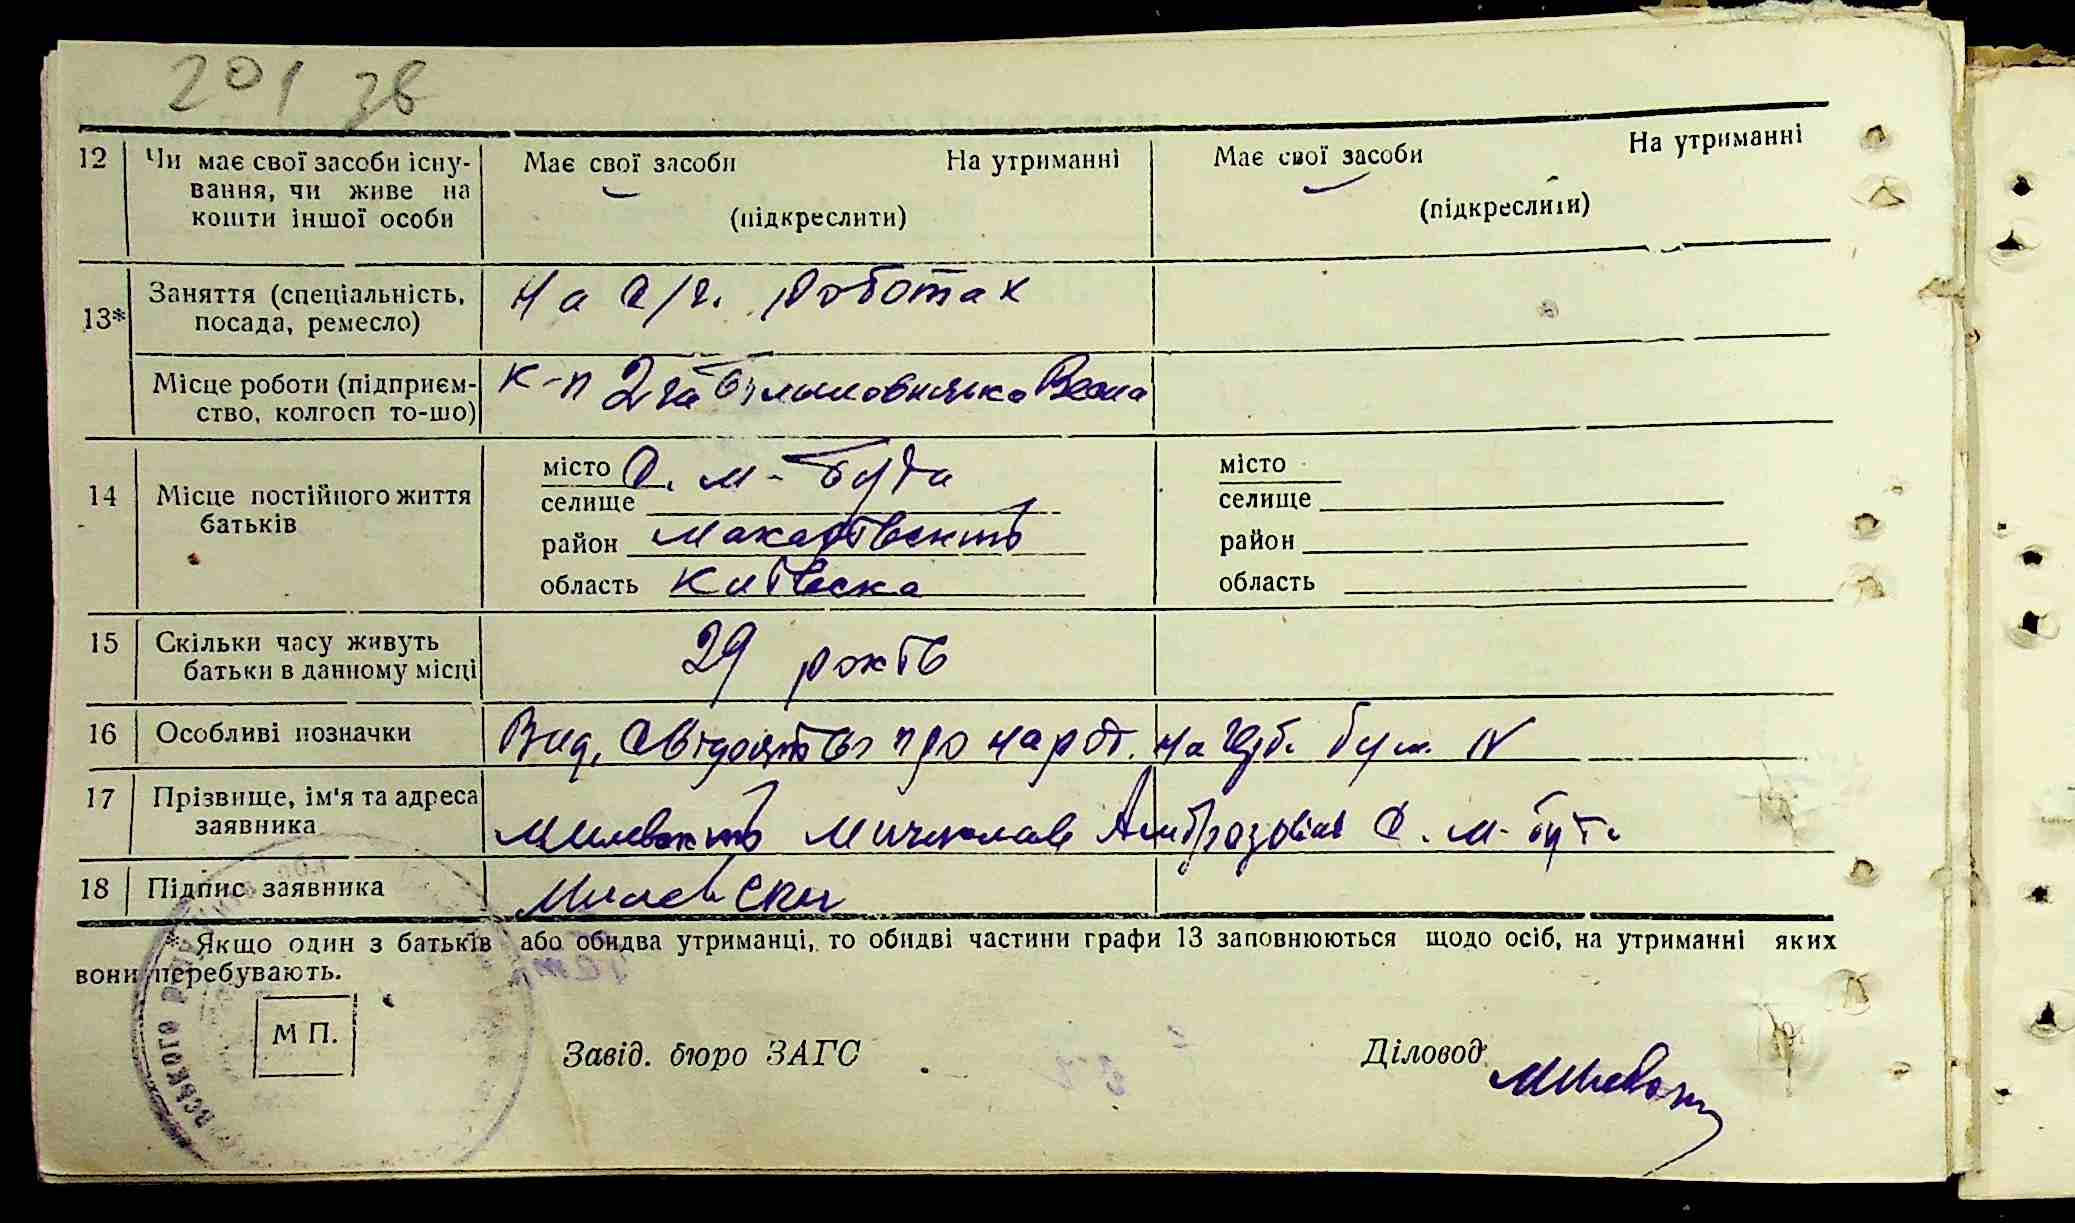 201 зв
12 Чи має свої засоби існу- Має свої засоби На утриманні Має свої засоби На утриманні
вання, чи живе на
кошти іншої особи (підкреслити) (підкреслити)
13* Заняття (спеціальність, На с/г. роботах
посада, ремесло)
Місце роботи (підприєм- к-п 2га Більшовицька Весна
ство, колгосп то-що)
14 Місце постійного життя місто С. М-Буда місто
батьків селище селище
район Макарівський район
область Київська область
15 Скільки часу живуть 29 років
батьки в данному місці
16 Особливі позначки Вид. свідоцтво про народ. на герб. бум. N
17 Прізвище, ім'я та адреса Милевський Мичислав Амброзовіч С. М-Буда
заявника
18 Підпис заявника Милевски
* Якщо один з батьків або обидва утриманці, то обидві частини графи 13 заповнюються щодо осіб, на утриманні яких
вони перебувають.
М П.
Завід. бюро ЗАГС Діловод